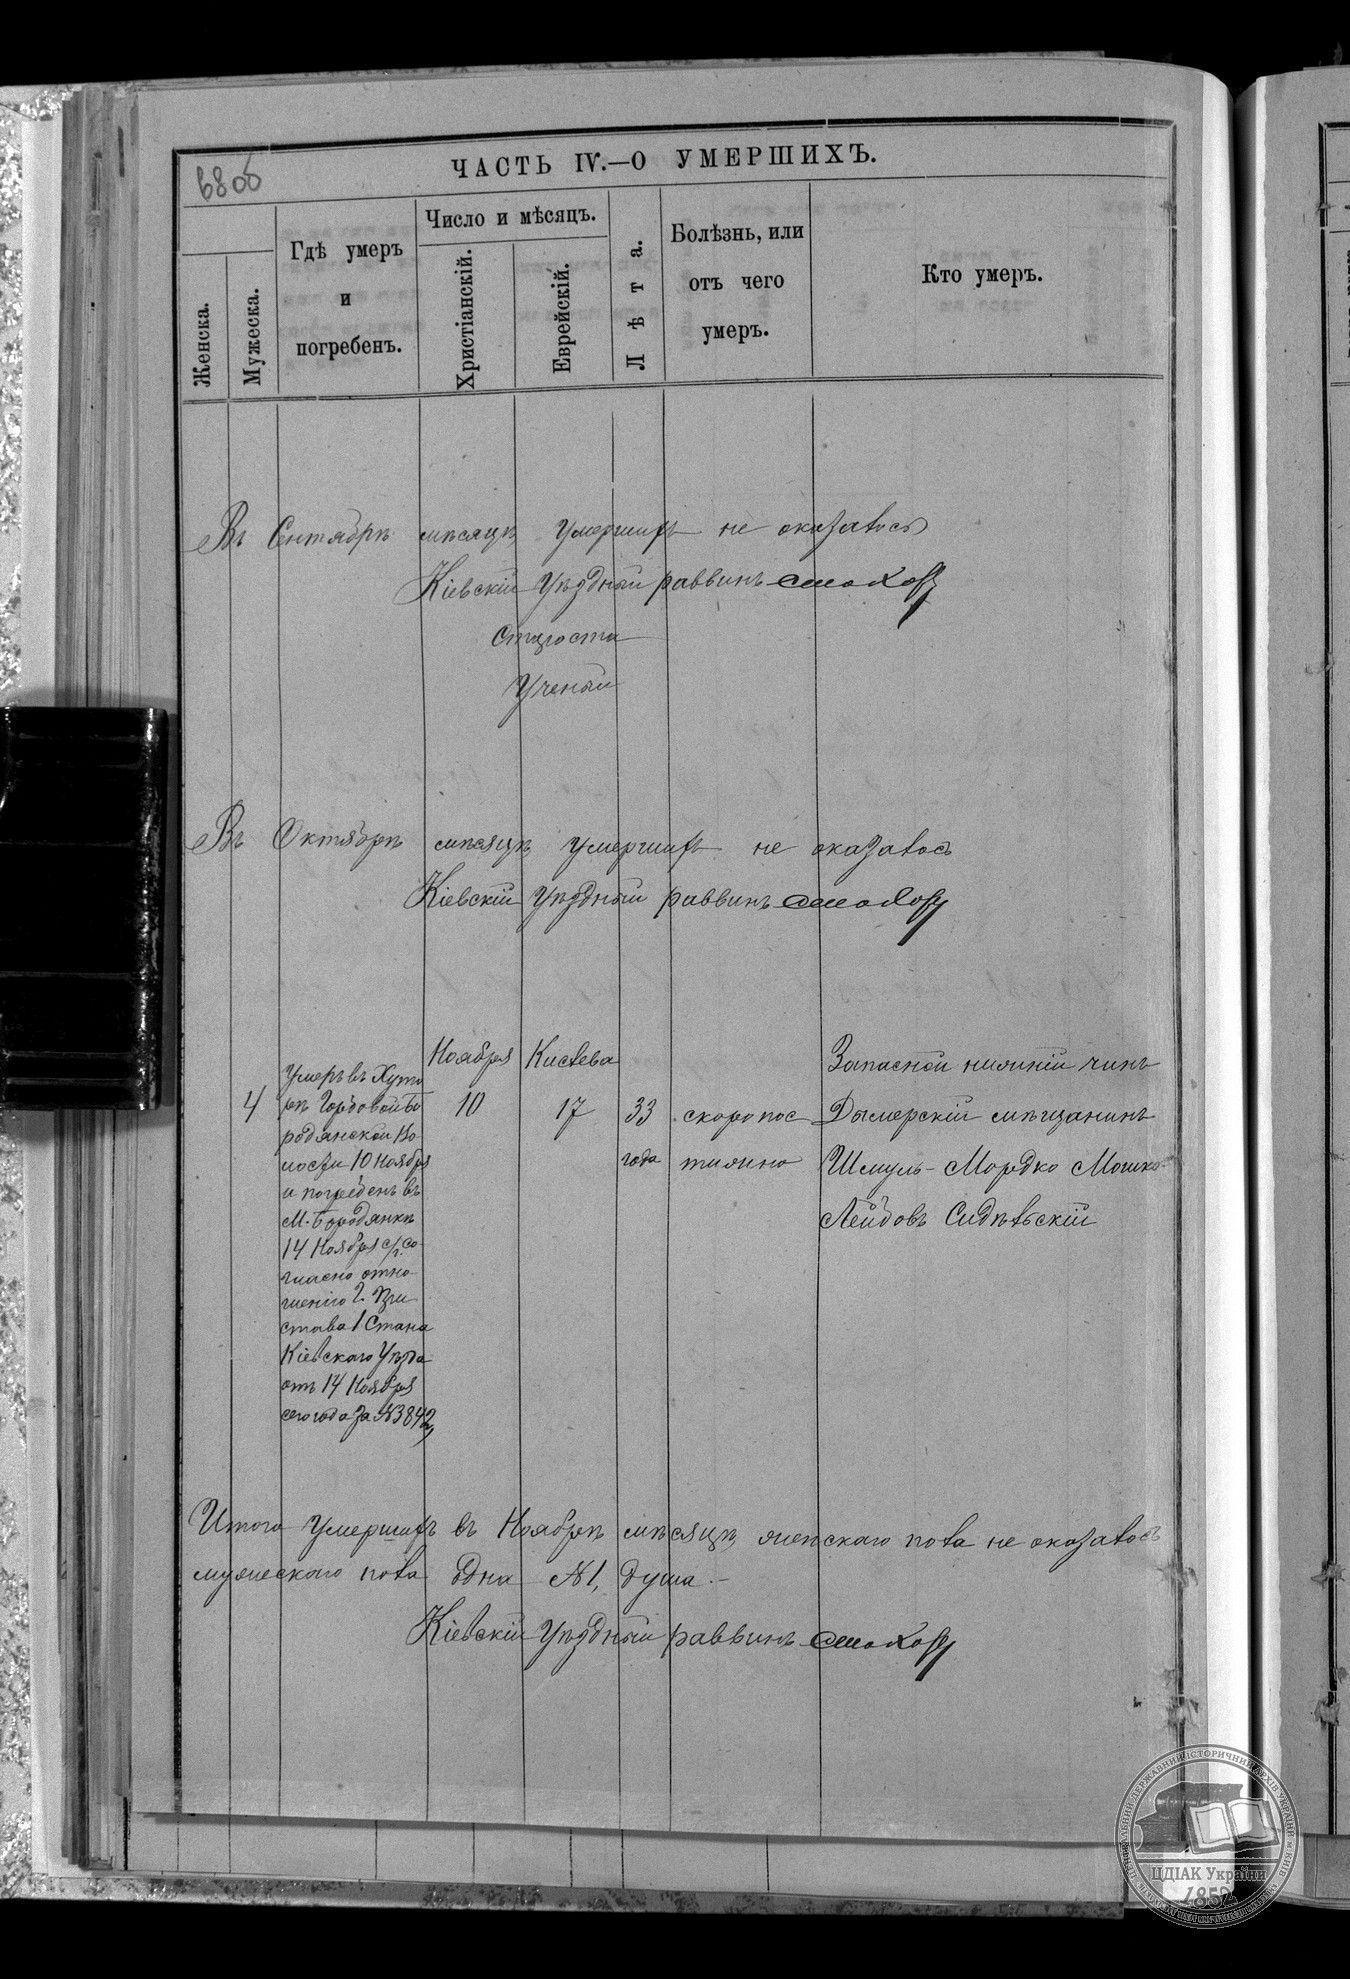 68об
ЧАСТЬ IV.—О УМЕРШИХЪ.
Женска.
Мужеска.
Гдѣ умеръ
и
погребенъ.
Число и мѣсяцъ.
Христіанскій.
Еврейскій.
Лѣта.
Болѣзнь, или
отъ чего
умеръ.
Кто умеръ.
Въ Сентябрѣ мѣсяцѣ умершихъ не оказалось
Кіевскій Уѣздный раввинъ
Староста
Ученый
Въ Октябрѣ мѣсяцѣ умершихъ не оказалось
Кіевскій Уѣздный раввинъ
4
Умеръ въ Хуто
рѣ Горбовой Бо
родянской Во
лости 10 Ноября
и погребенъ въ
М. Бородянкѣ
14 Ноября с/г. со
гласно отно
шенію Г. При
става 1 Стана
Кіевскаго Уѣзда
отъ 14 Ноября
сего года за №3842
Ноября
10
Кислева
17
33
года
скоропос
тижно
Запасной нижній чинъ
Дымерскій мѣщанинъ
Шмуль-Мордко Мошко-
Лейбовъ Сидѣльскій
Итого умершихъ въ Ноябрѣ мѣсяцѣ женскаго пола не оказалось
мужескаго пола одна №1, душа.—
Кіевскій Уѣздный раввинъ
ЦДІАК України
1852